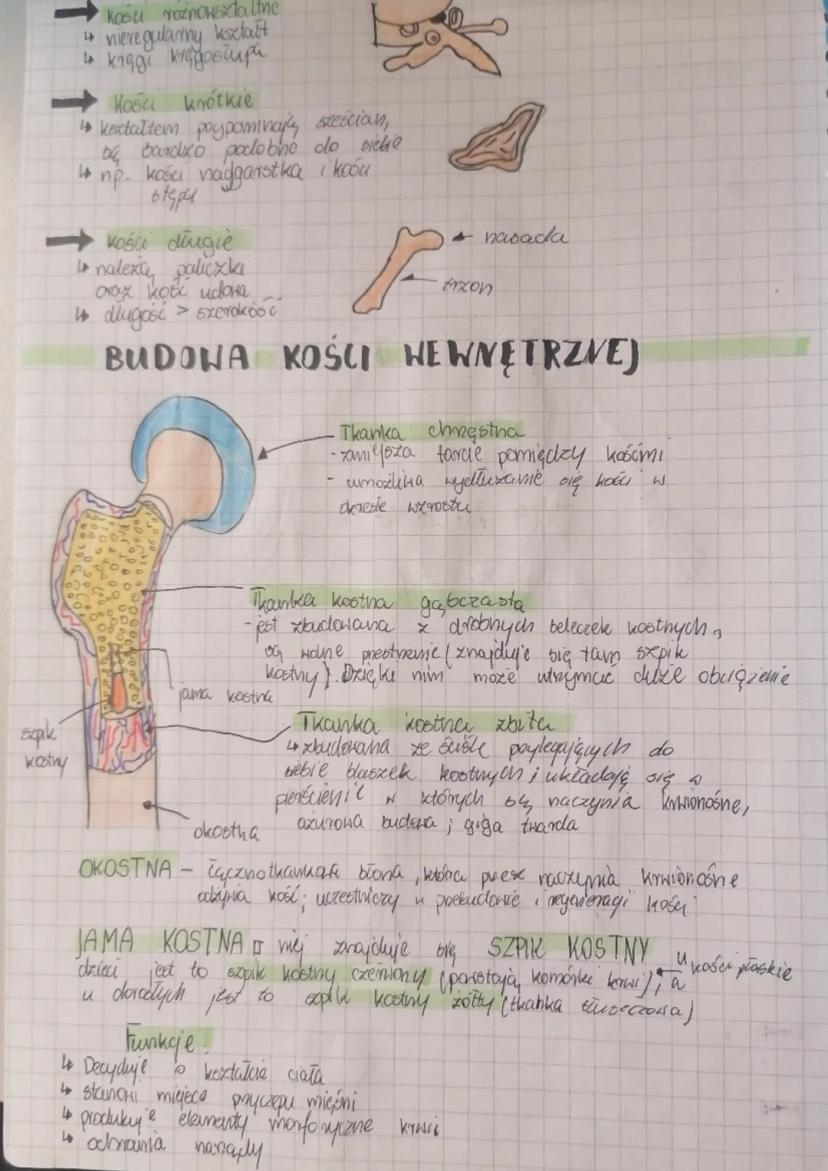 kości różnokształtne
↳ nieregularny kształt
↳ kręgi kręgosłupa
kości krótkie
↳ kształtem przypominają sześcian,
są bardzo podobne do siebie
↳ np. kości nadgarstka i kości
stępu
kości długie
↳ należą paliczki
oraz kość udowa
↳ długość > szerokość
nasada
trzon
BUDOWA KOŚCI WEWNĘTRZNEJ
Tkanka chrzęstna
- zmniejsza tarcie pomiędzy kośćmi
- umożliwia wydłużanie się kości w
okresie wzrostu
Tkanka kostna gąbczasta
- jest zbudowana z drobnych beleczek kostnych,
są wolne przestrzenie (znajduje się tam szpik
kostny). Dzięki nim może utrzymać duże obciążenie
jama kostna
szpik
kostny
Tkanka kostna zbita
↳ zbudowana ze ściśle przylegających do
siebie blaszek kostnych i układają się w
pierścienie w których są naczynia krwionośne,
ażurowa budowa; giga twarda
okostna
OKOSTNA - łącznotkankowa błona, która przez naczynia krwionośne
odżywia kość; uczestniczy w przebudowie i regeneracji kości
JAMA KOSTNA w niej znajduje się SZPIK KOSTNY u
dzieci jest to szpik kostny czerwony (powstają komórki krwi), a ← kości płaskie
u dorosłych jest to szpik kostny żółty (tkanka tłuszczowa)
Funkcje:
↳ Decyduje o kształcie ciała
↳ stanowi miejsce przyczepu mięśni
↳ produkuje elementy morfotyczne krwi
↳ ochrania narządy